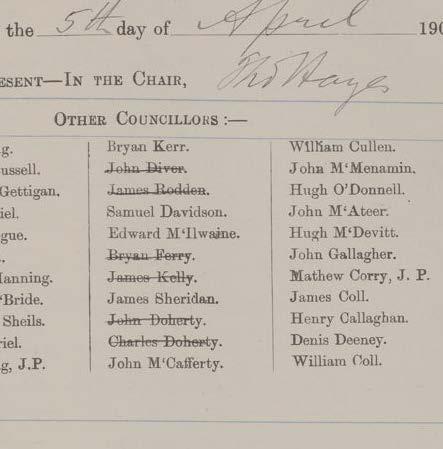 the 5th day of April 190
ESENT—IN THE CHAIR, Thos Hayes
OTHER COUNCILLORS :—
g.
ussell.
Gettigan.
iel.
gue.
.
Ianning.
'Bride.
Sheils.
riel.
g, J.P.
Bryan Kerr.
John Diver.
James Rodden.
Samuel Davidson.
Edward M'Ilwaine.
Bryan Ferry.
James Kelly.
James Sheridan.
John Doherty.
Charles Doherty.
John M'Cafferty.
William Cullen.
John M'Menamin.
Hugh O'Donnell.
John M'Ateer.
Hugh M'Devitt.
John Gallagher.
Mathew Corry, J. P.
James Coll.
Henry Callaghan.
Denis Deeney.
William Coll.